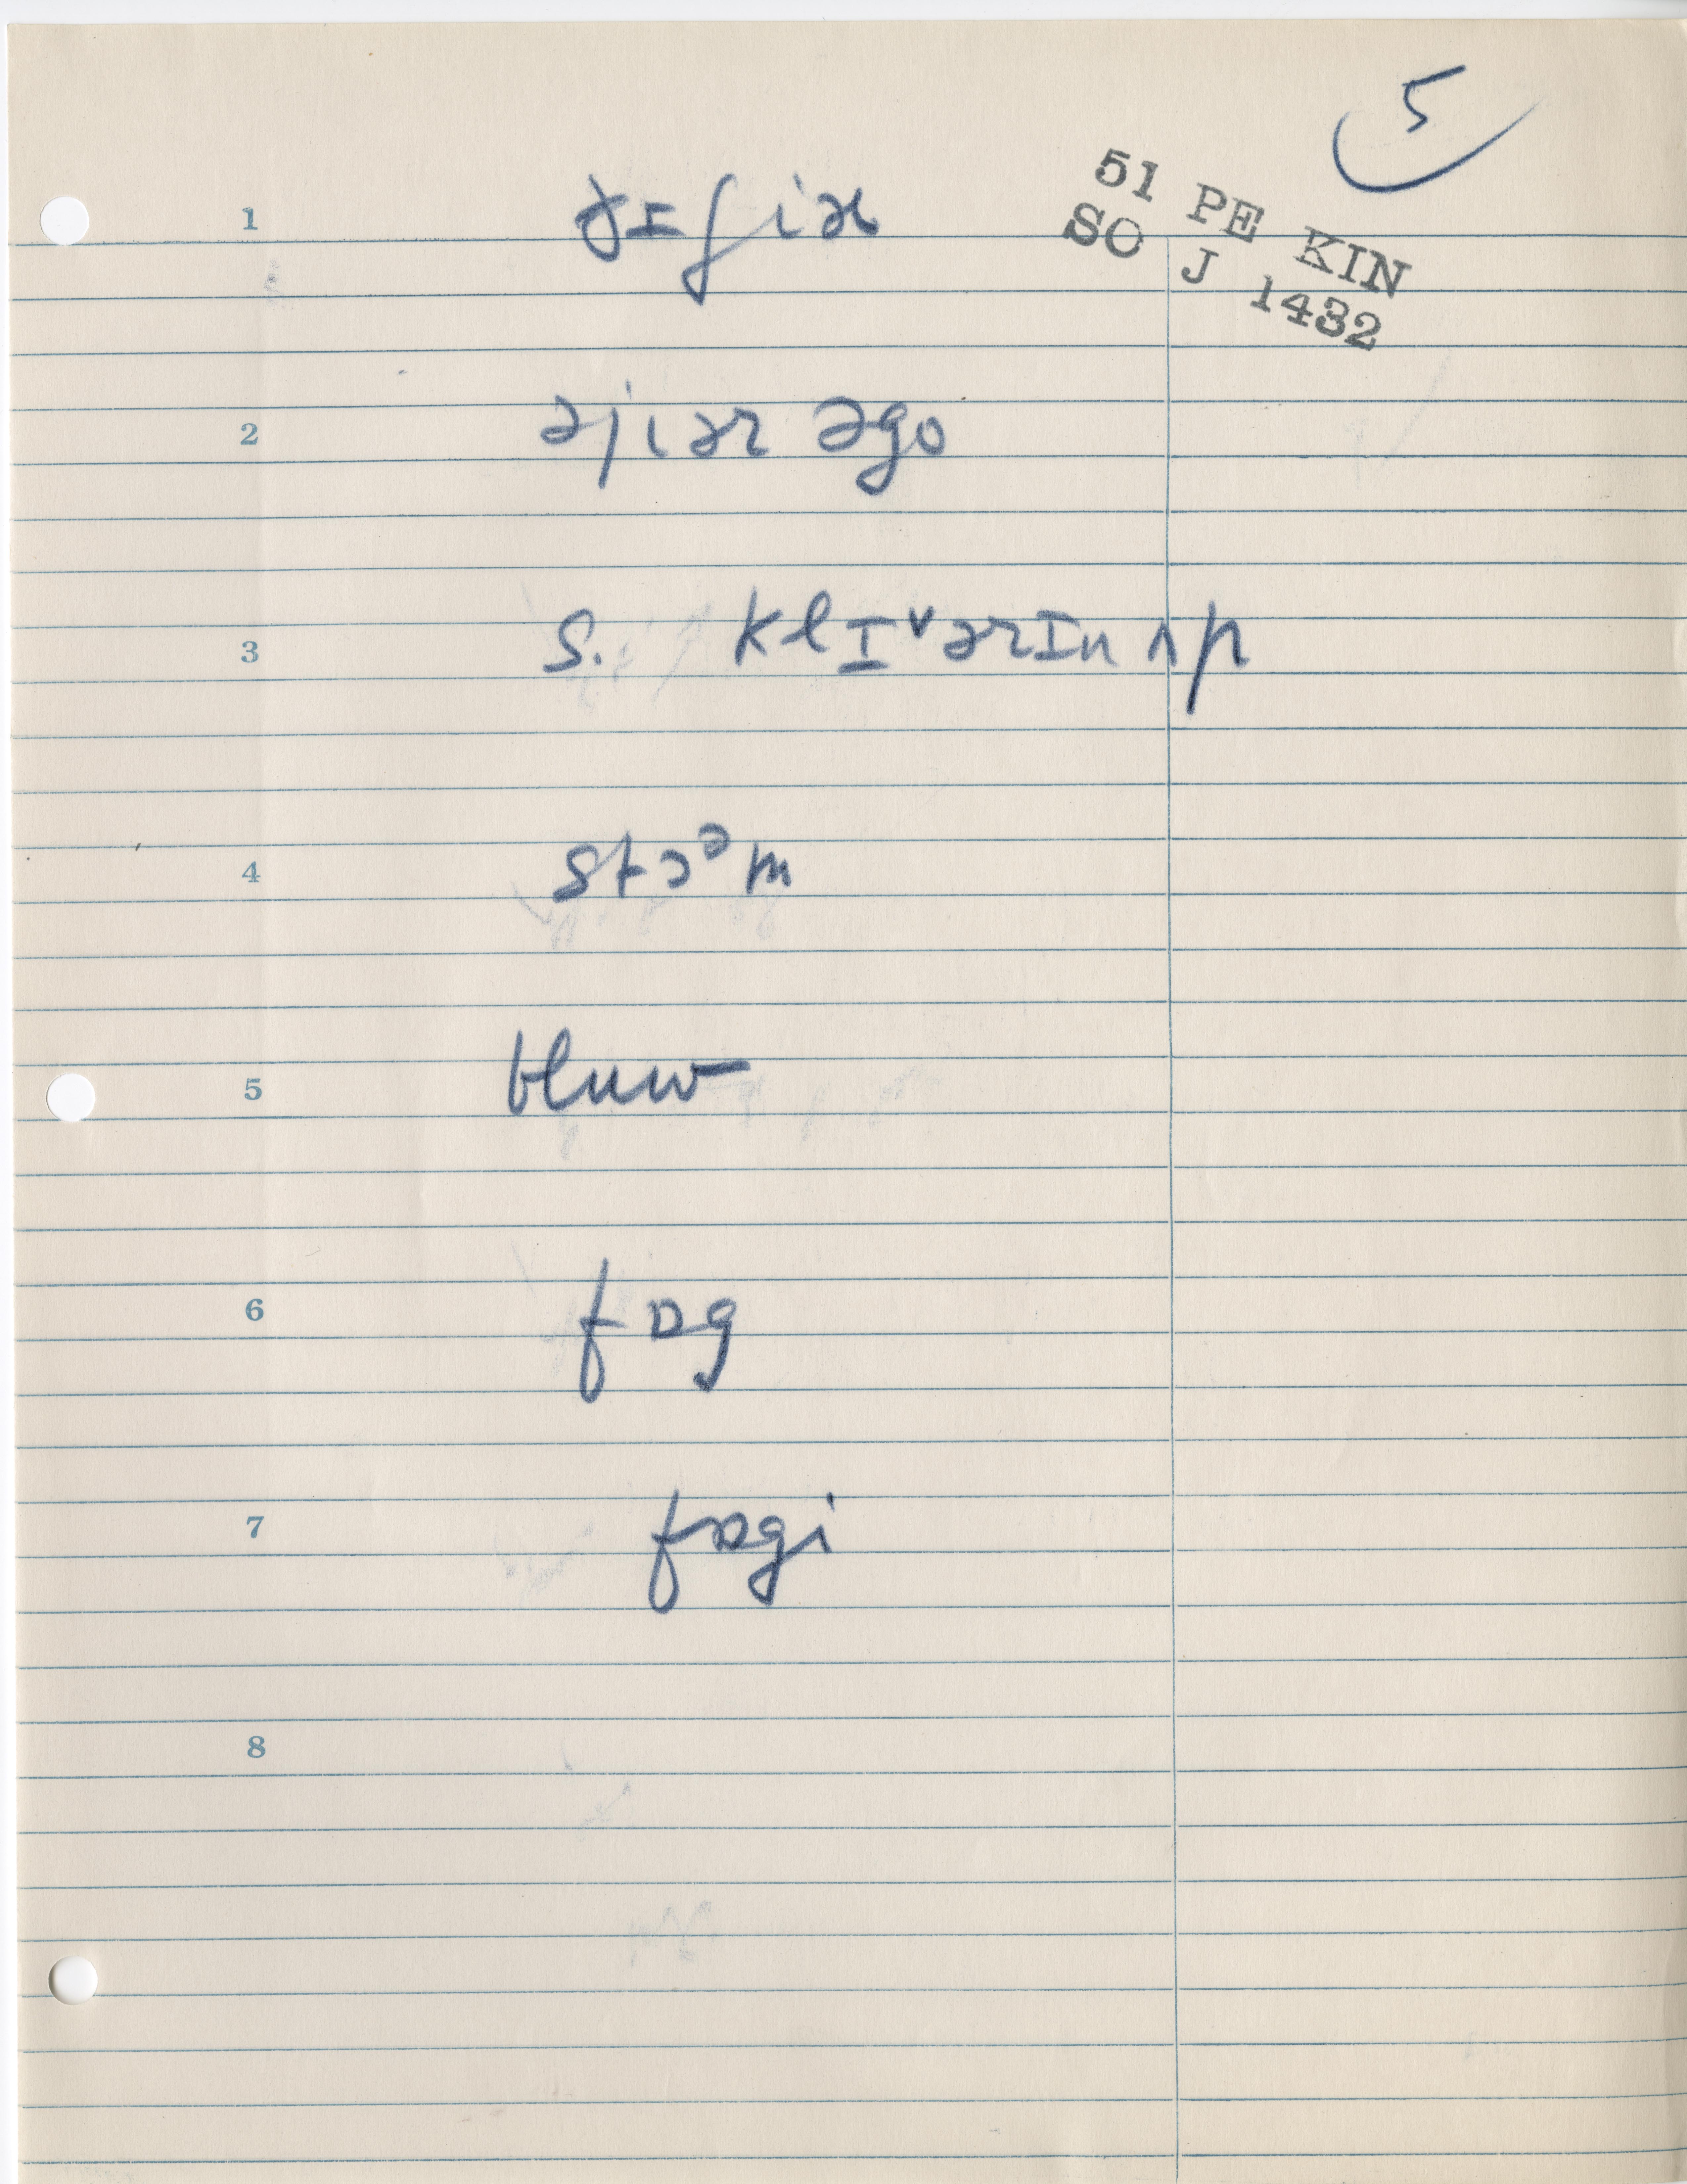 5
51 PE KIN
SO J 1432
1 ðɪʃiə
2 əjɪər əgo
3 S. klɪvərɪn ʌp
4 stɔᵊm
5 bluw
6 fɒg
7 fɒgi
8